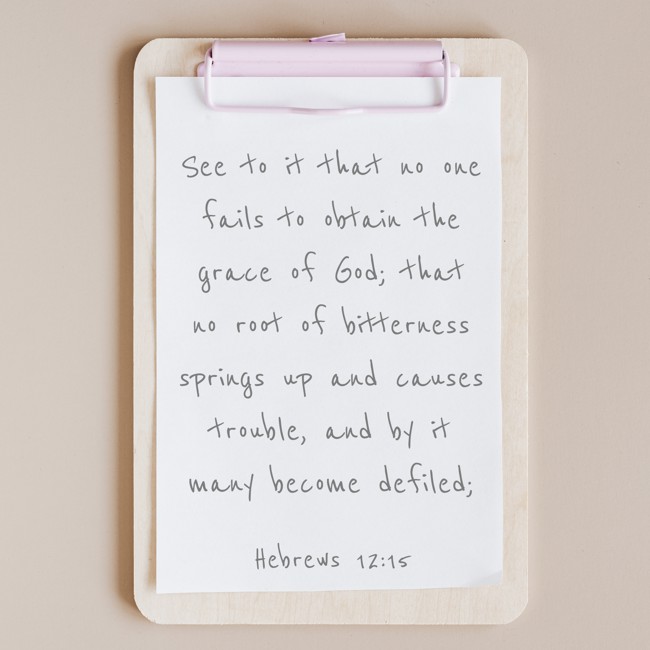 See to it that no one
fails to obtain the
grace of God; that
no root of bitterness
springs up and causes
trouble, and by it
many become defiled;
Hebrews 12:15